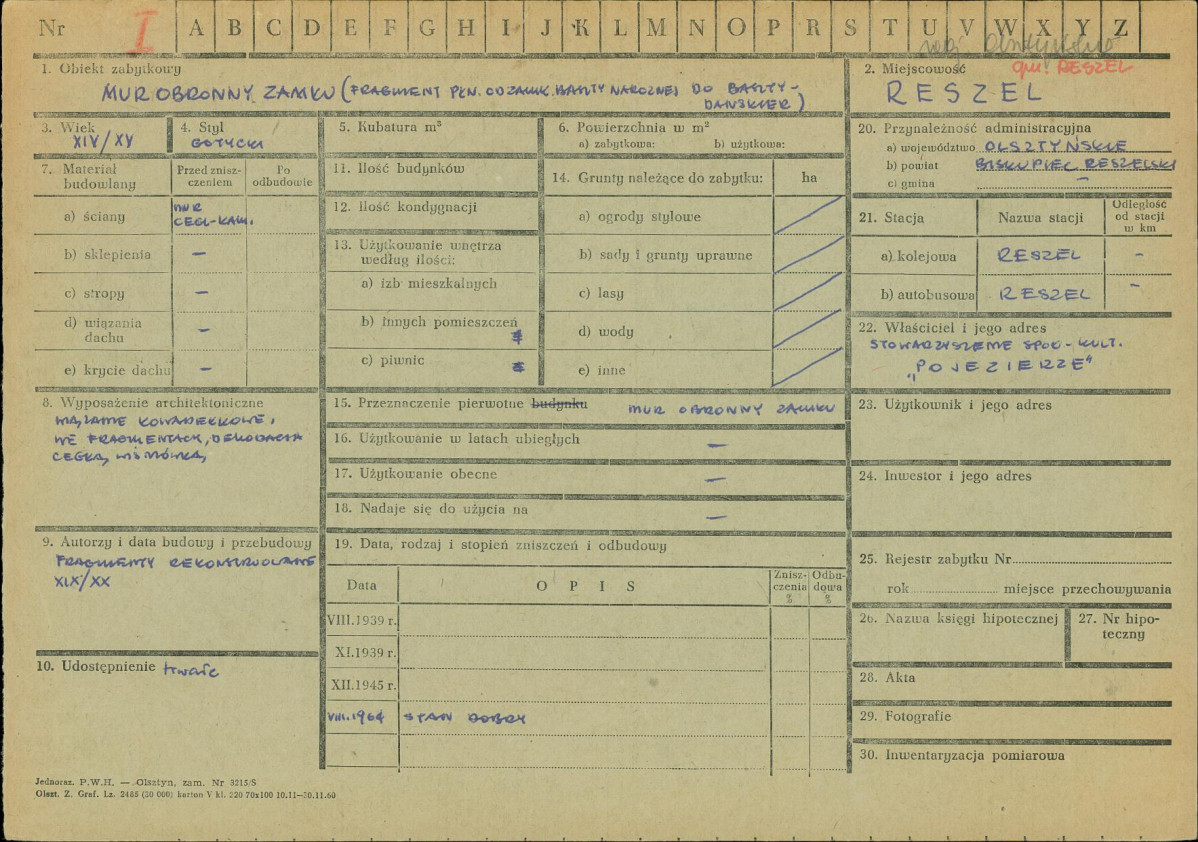 Nr I A B C D E F G H I J K L M N O P R S T U V W X Y Z
woj. Olsztyńskie
gm. RESZEL
1. Obiekt zabytkowy
MUR OBRONNY ZAMKU (FRAGMENT PŁN. OD ZAMK. BASZTY NAROŻNEJ DO BASZTY-
DANSKIER)
2. Miejscowość
RESZEL
3. Wiek
XIV/XV
4. Styl
GOTYCKI
5. Kubatura m³
6. Powierzchnia w m²
a) zabytkowa: b) użytkowa:
20. Przynależność administracyjna
a) województwo OLSZTYŃSKIE
b) powiat BISKUPIEC RESZELSKI
c) gmina —
7. Materiał
budowlany
Przed znisz-
czeniem
Po
odbudowie
a) ściany
MUR
CEGL-KAM.
b) sklepienia —
c) stropy —
d) wiązania
dachu —
e) krycie dachu —
11. Ilość budynków
12. Ilość kondygnacji
13. Użytkowanie wnętrza
według ilości:
a) izb mieszkalnych
b) innych pomieszczeń
c) piwnic
14. Grunty należące do zabytku: ha
a) ogrody stylowe
b) sady i grunty uprawne
c) lasy
d) wody
e) inne
21. Stacja Nazwa stacji
Odległość
od stacji
w km
a) kolejowa RESZEL -
b) autobusowa RESZEL -
22. Właściciel i jego adres
STOWARZYSZENIE SPOŁ-KULT.
"POJEZIERZE"
8. Wyposażenie architektoniczne
WE FRAGMENTACH, DEKORACJA
15. Przeznaczenie pierwotne budynku MUR OBRONNY ZAMKU
16. Użytkowanie w latach ubiegłych —
17. Użytkowanie obecne —
18. Nadaje się do użycia na —
23. Użytkownik i jego adres
24. Inwestor i jego adres
9. Autorzy i data budowy i przebudowy
FRAGMENTY REKONSTRUOWANE
XIX/XX
10. Udostępnienie trwałe
19. Data, rodzaj i stopień zniszczeń i odbudowy
Data O P I S
Znisz-
czenia
%
Odbu-
dowa
%
VIII.1939 r.
XI.1939 r.
XII.1945 r.
VIII.1964 STAN DOBRY
25. Rejestr zabytku Nr
rok miejsce przechowywania
26. Nazwa księgi hipotecznej
27. Nr hipo-
teczny
28. Akta
29. Fotografie
30. Inwentaryzacja pomiarowa
Jednoraz. P.W.H. — Olsztyn, zam. Nr 3215/S
Olszt. Z. Graf. Lz. 2485 (20 000) karton V kl. 220 70x100 10.11—30.11.60